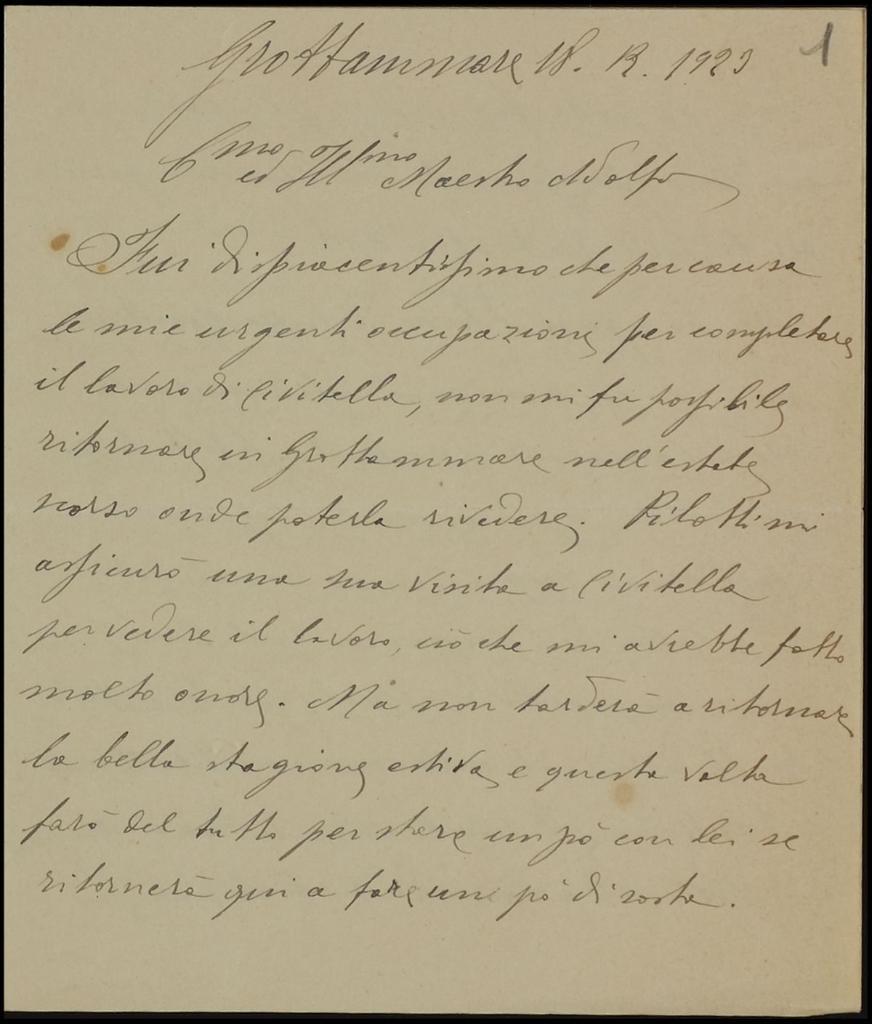 1
Grottammare 18. 12. 1923
C.mo ed Ill.mo Maestro Adolfo
Fui dispiacentissimo che per causa
le mie urgenti occupazioni per completare
il lavoro di Civitella, non mi fu possibile
ritornare in Grottammare nell'estate
scorso onde poterla rivedere. Pilotti mi
assicurò una sua visita a Civitella
per vedere il lavoro, ciò che mi avrebbe fatto
molto onore. Ma non tarderà a ritornare
la bella stagione estiva e questa volta
farò del tutto per stare un pò con lei se
ritornerà qui a fare un pò di sosta.